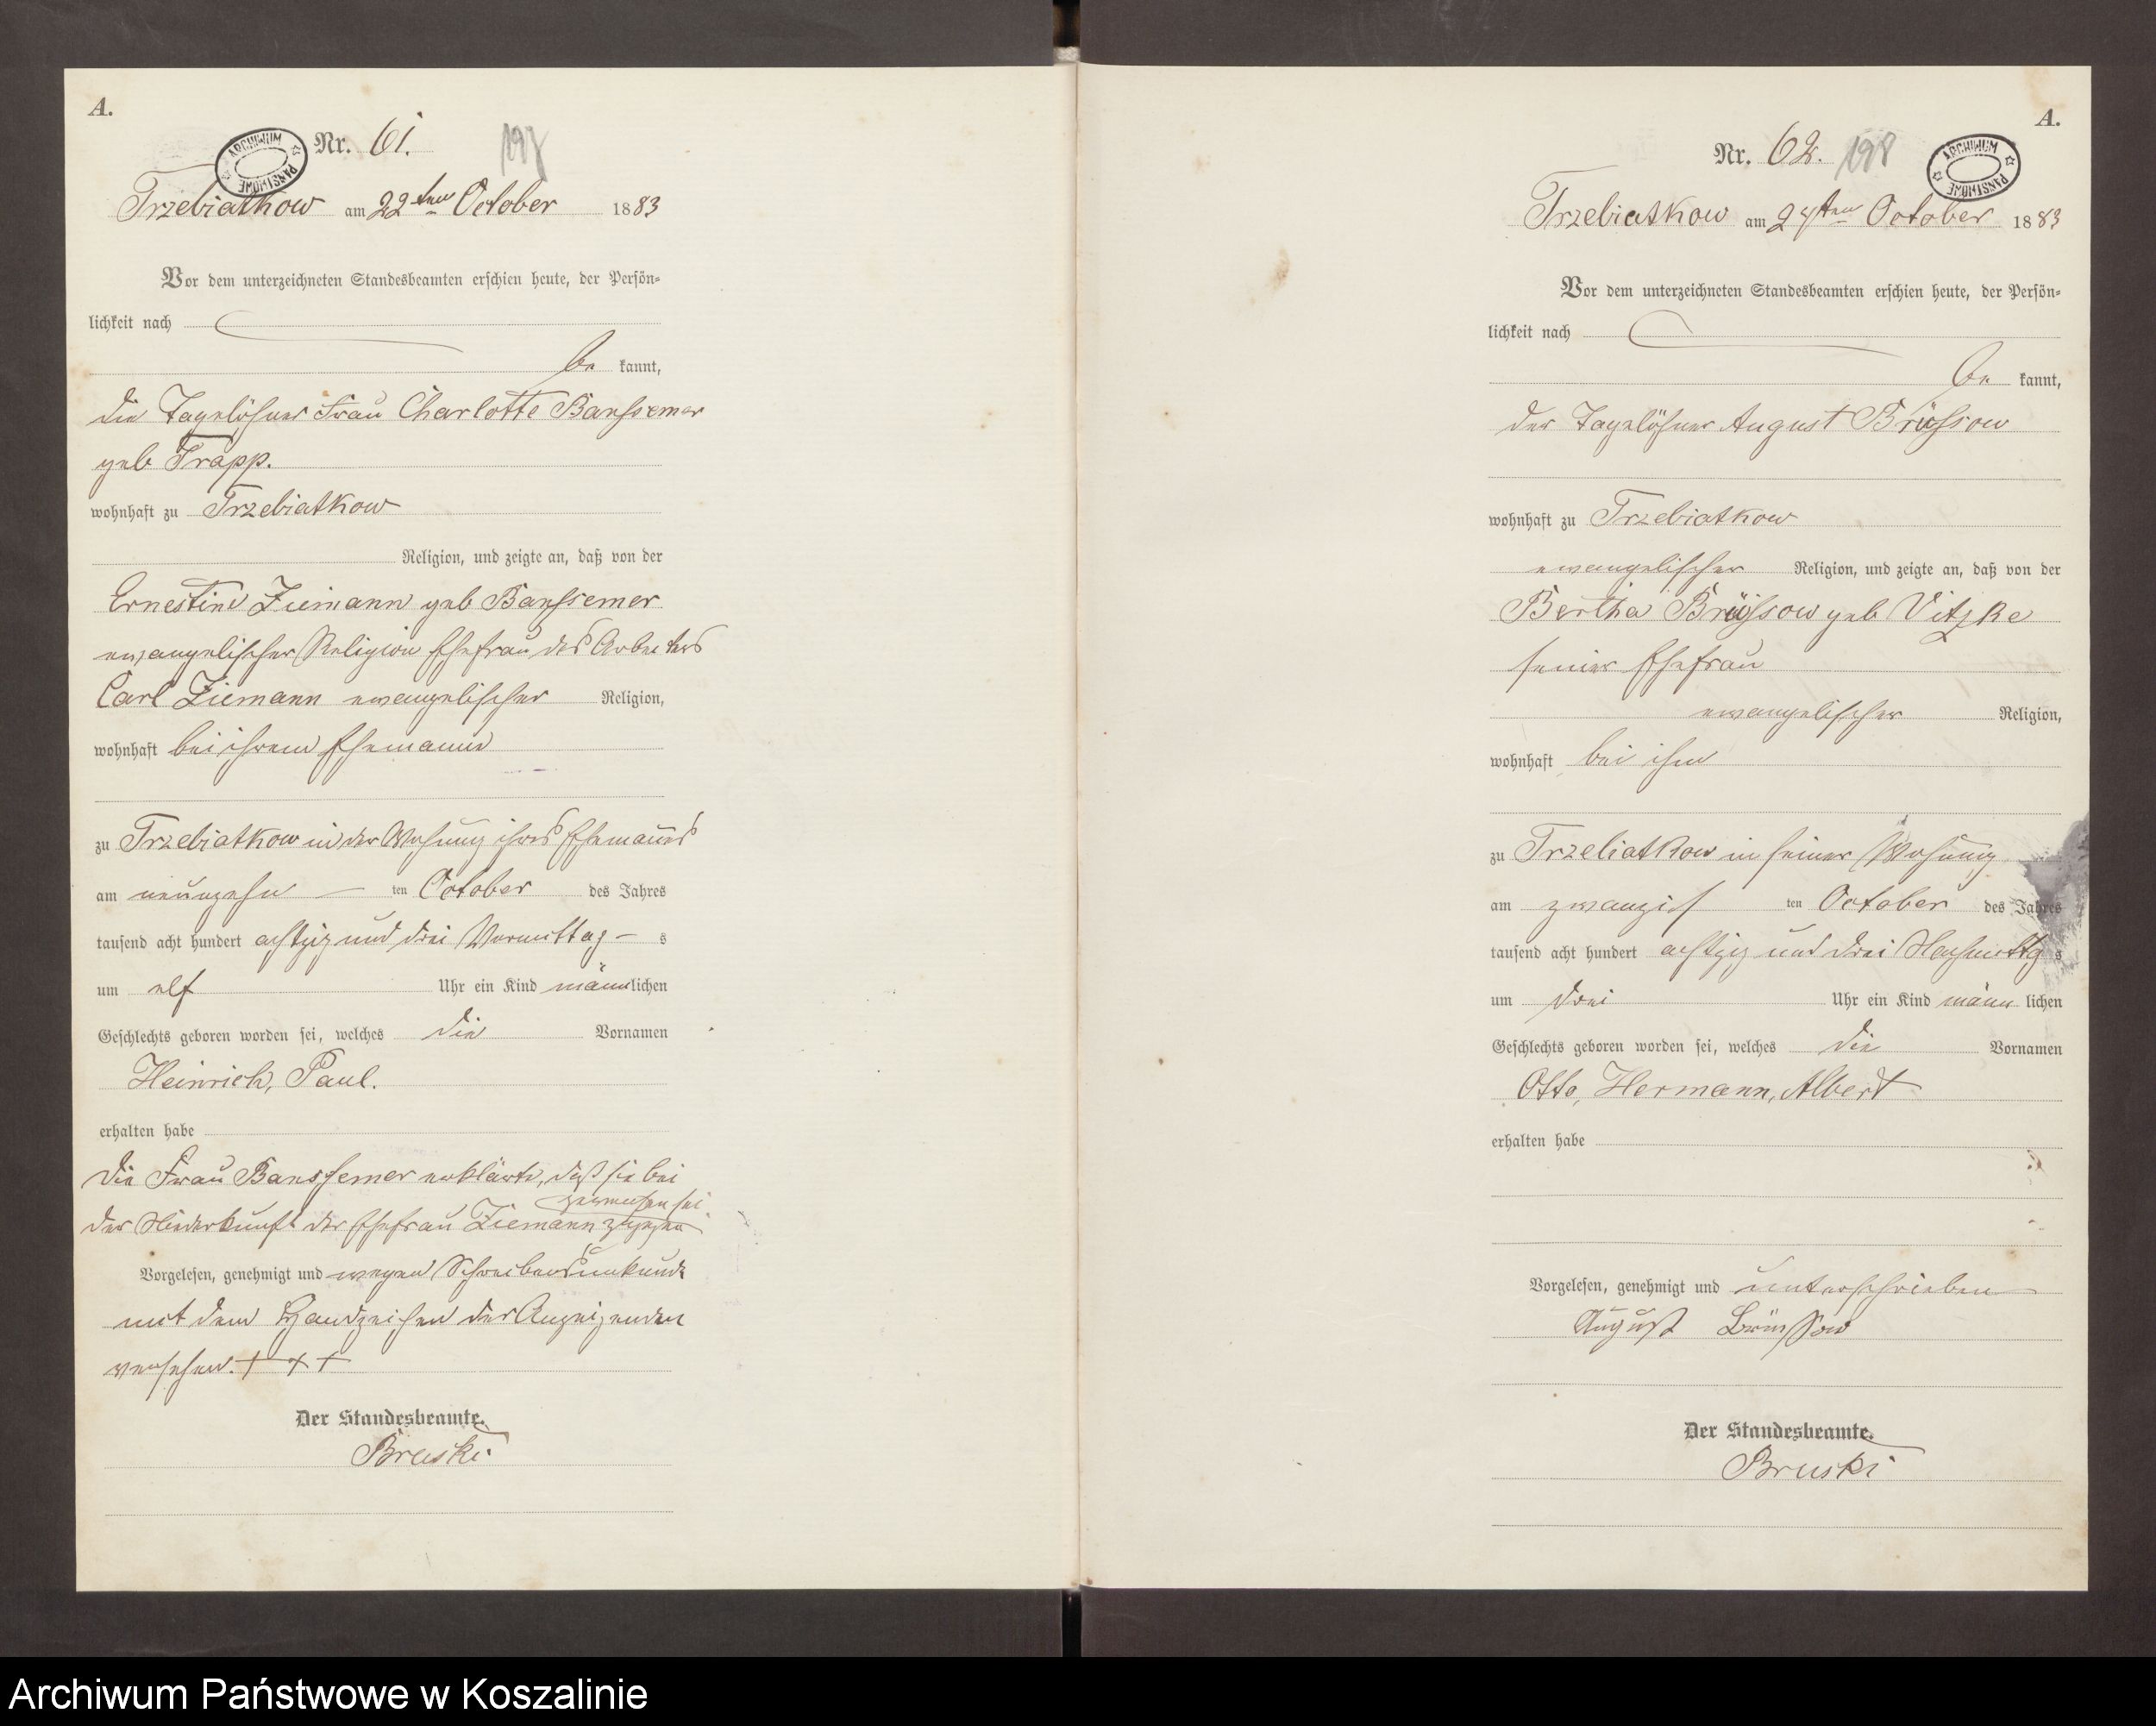 A.
ARCHIWUM PAŃSTWOWE
Nr. 61.
197
Trzebiatkow am 22ten October 1883
Vor dem unterzeichneten Standesbeamten erschien heute, der Persön-
lichkeit nach
be kannt,
die Tagelöhner Frau Charlotte Banssemer
geb Trapp.
wohnhaft zu Trzebiatkow
Religion, und zeigte an, daß von der
Ernestine Ziemann geb Banssemer
evangelischer Religion Ehefrau des Arbeiters
Carl Ziemann evangelischer Religion,
wohnhaft bei ihrem Ehemanne
zu Trzebiatkow in der Wohnung ihres Ehemannes
am neunzehn ten October des Jahres
tausend acht hundert achtzig und drei Vormittag s
um elf Uhr ein Kind männlichen
Geschlechts geboren worden sei, welches die Vornamen
Heinrich, Paul.
erhalten habe
Die Frau Banssemer erklärte, daß sie bei
der Niederkunft der Ehefrau Ziemann zugegen
gewesen sei.
Vorgelesen, genehmigt und wegen Schreibensunkunde
mit dem Handzeichen der Anzeigenden
versehen. + + +
Der Standesbeamte.
Bruski
A.
Nr. 62.
198
ARCHIWUM PAŃSTWOWE
Trzebiatkow am 24ten October 1883
Vor dem unterzeichneten Standesbeamten erschien heute, der Persön-
lichkeit nach
be kannt,
der Tagelöhner August Brüssow
wohnhaft zu Trzebiatkow
evangelischer Religion, und zeigte an, daß von der
Bertha Brüssow geb Vitzke
seiner Ehefrau
evangelischer Religion,
wohnhaft bei ihm
zu Trzebiatkow in seiner Wohnung
am zwanzigs ten October des Jahres
tausend acht hundert achtzig und drei Nachmittg s
um drei Uhr ein Kind männ lichen
Geschlechts geboren worden sei, welches die Vornamen
Otto, Hermann, Albert
erhalten habe
Vorgelesen, genehmigt und unterschrieben
August Brüssow
Der Standesbeamte.
Bruski
Archiwum Państwowe w Koszalinie